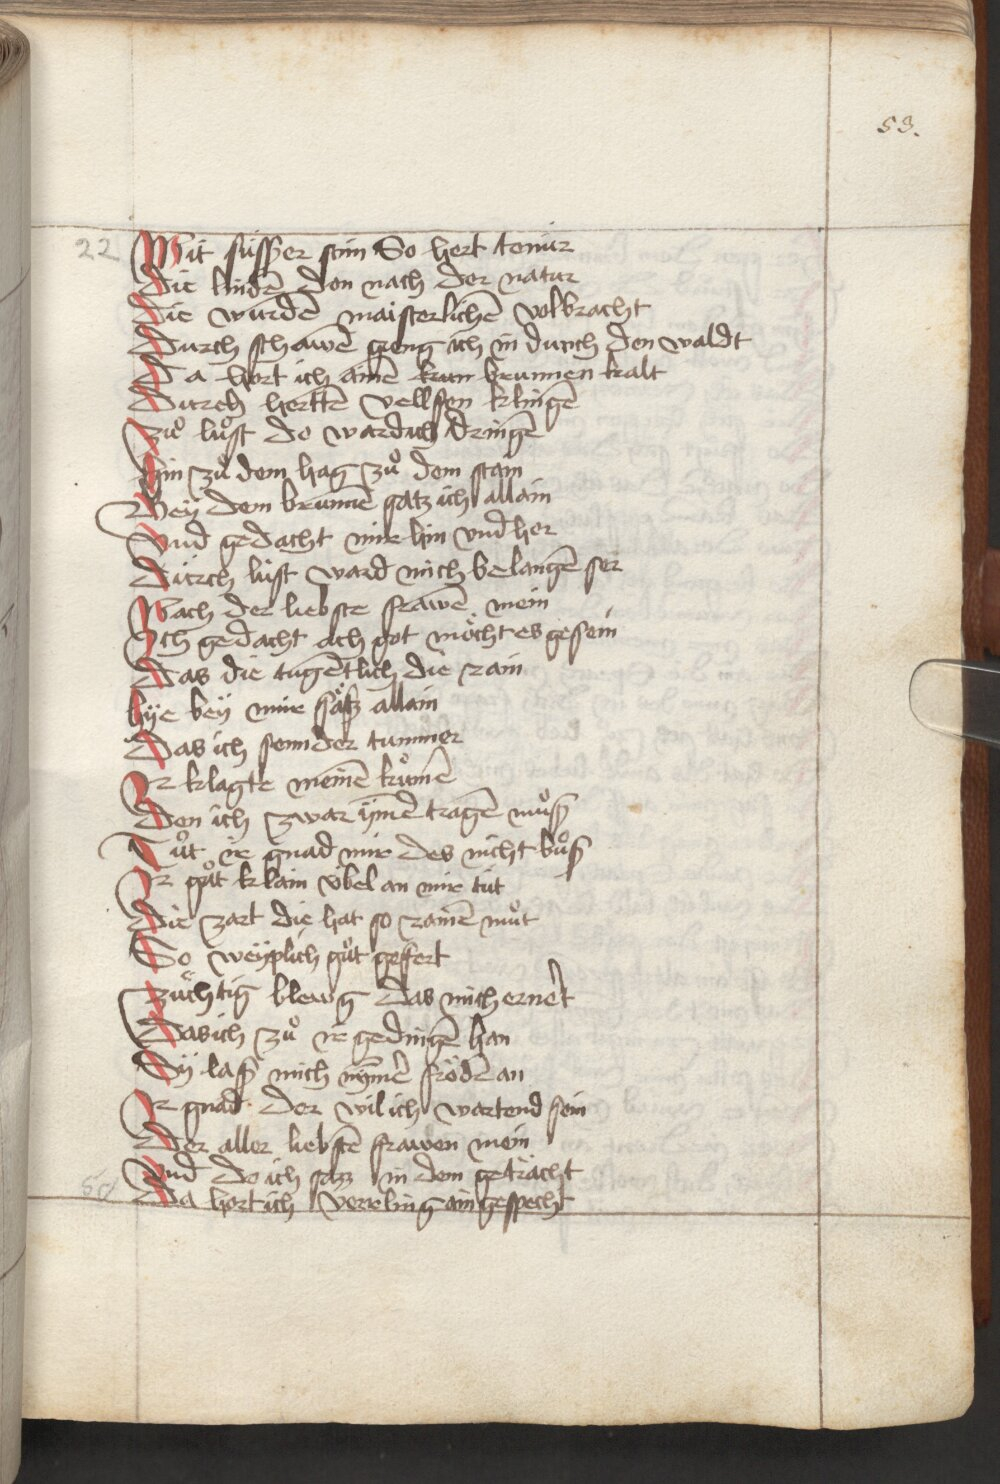 53.
22 Mit süsser stim So hort tenur
Die lindē don nach der natur
Die wurdē maisterlichē volbracht
Durch schawē gieng ich in durch den waldt
Da hort ich ainē brunnen kalt
Durch hertē vellsen klingē
Zů lust do ward ich dringē
Hin zů dem hag zů dem stain
Bey dem brunnē satz ich allain
Vnd gedacht mir hin vnd her
Durch lust ward mich belangē ser
Nach der liebste frawē mein
Ich gedacht ach got möcht es gesein
Das die tugentlich die rain
hye bey mir säsz allain
Das ich sennder tummer
Ir klagte meinē kůmē
Den ich zwar ÿmē tragē můsz
Tůt ir gnad mir des nicht bůsz
Ir gůt klain vbel an mir tůt
Die zart die hat so rainē můt
So weyplich gůt gefert
Züchtig das mich ernert
Das ich zů ir gedingē han
Dÿ lasz mich nÿmē frödē an
Ir gnad der wil ich wartend sein
Der aller liebstē frawen mein
Vnd do ich sasz in dem geträcht
50 Da hort ich verrling ain gesprecht